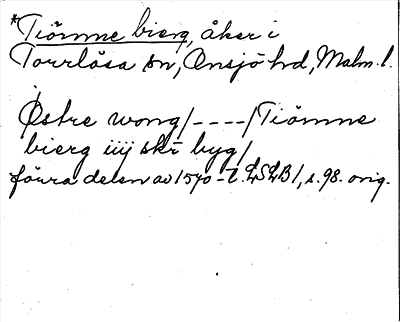 *Tiömme bierg, åker i
Torrlösa sn, Onsjö hd, Malm. l.
Östre wong/----/Tiömme
bierg iiij skr byg/
förra delen av 1570-t. LSLB/, s. 98. orig.